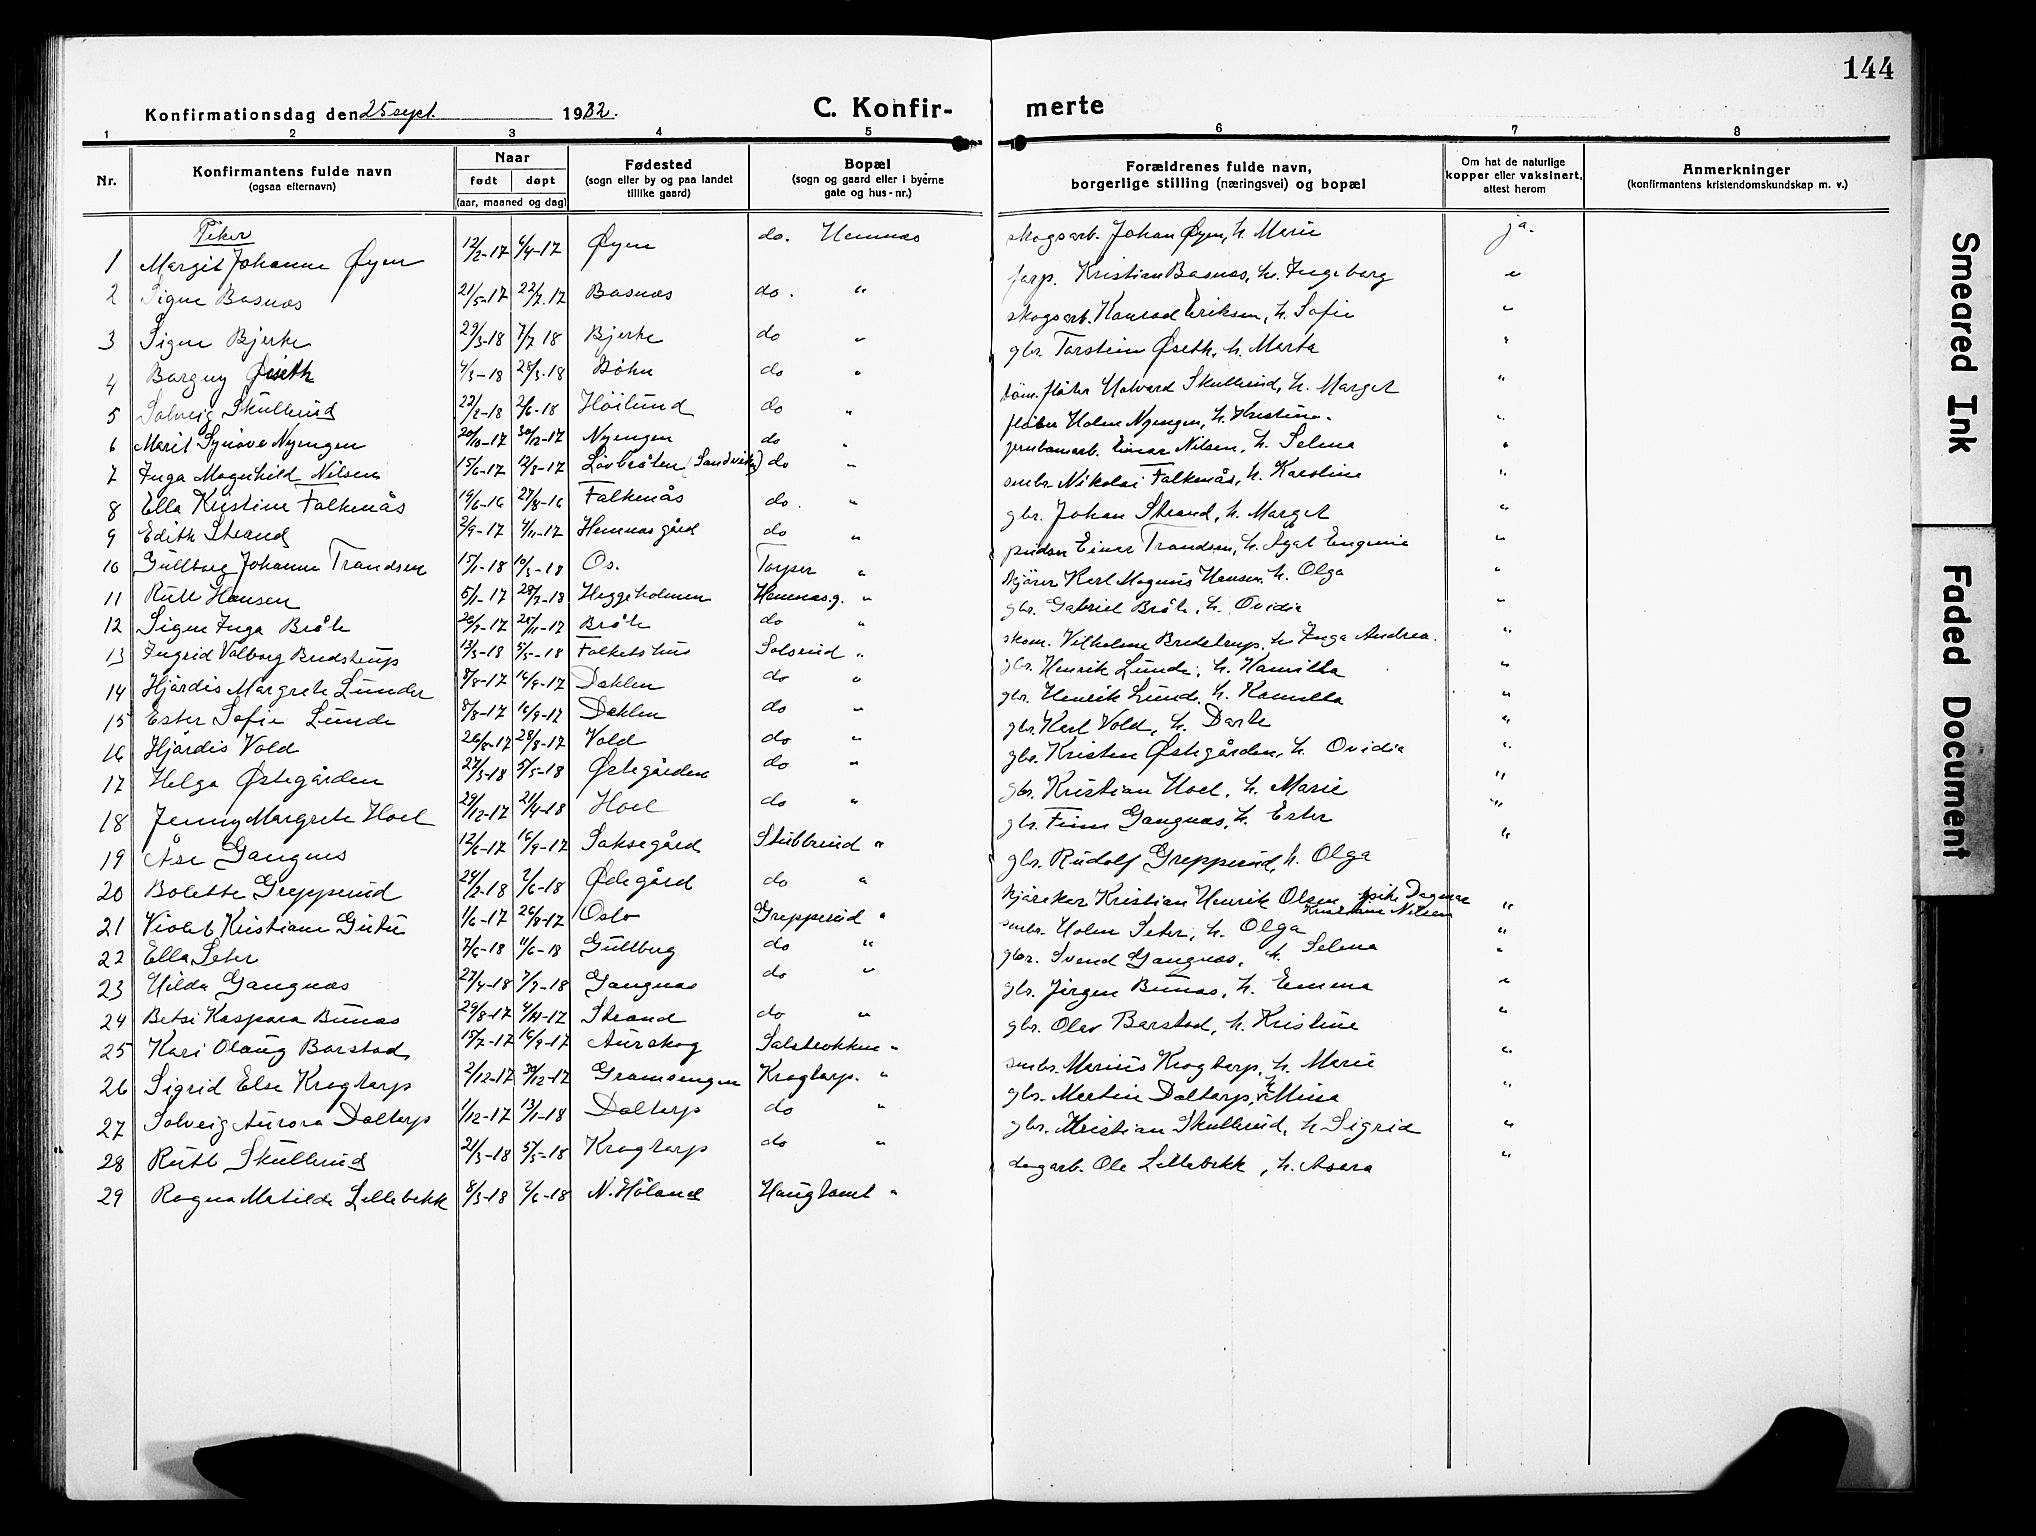 144
Konfirmationsdag den 25 sept. 1932.
C. Konfir-
merte
1 2 3 4 5 6 7 8
Nr.
Konfirmantens fulde navn
(ogsaa efternavn)
Naar
født døpt
(aar, maaned og dag)
Fødested
(sogn eller by og paa landet
tillike gaard)
Bopæl
(sogn og gaard eller i byerne
gate og hus-nr.)
Forældrenes fulde navn,
borgerlige stilling (næringsvei) og bopæl
Om hat de naturlige
kopper eller vaksinert,
attest herom
Anmerkninger
(konfirmantens kristendomskundskap m. v.)
Piker
1 Margit Johanne Øyen 12/2-17 6/4-17 Øyen do. Hemnæs skogsarb. Johan Øyen, h. Marie ja.
2 Signe Basnæs 21/5-17 22/7-17 Basnæs do. " forp. Kristian Basnæs, h. Ingeborg "
3 Signe Bjerke 29/3-18 7/7 18 Bjerke do " skogsarb. Konrad Eriksen, h. Sofie "
4 Borgny Øseth 4/3-18 28/3-18 Böhn do " gbr. Torstein Øseth, h. Marta "
5 Solveig Skullerud 22/2-18 2/6-18 Höilund do " töm. fløter Halvard Skullerud, h. Marget "
6 Marit Synöve Nyengen 20/10-17 30/12-17 Nyengen do " fløter Holm Nyengen, h. Kristine. "
7 Inga Magnhild Nilsen 15/6-17 12/8-17 Lövbråten (Sandviken) do " jernbanarb. Einar Nilsen, h. Selma "
8 Ella Kristine Falkenås 19/6-16 27/8-16 Falkenås do. " smbr. Nikolai Falkenås, h. Karoline "
9 Edith Strand 2/9-17 4/11-17 Hemnæs gård do " gbr. Johan Strand, h. Marget "
10 Gullborg Johanne Trandsen 15/1-18 10/3-18 Os. Torper " Einar Trandsen, h. Agat Eugenie "
11 Ruth Hansen 5/1-17 28/7-18 Heggeholmen Hemnæs.g. " kjörer Karl Magnus Hansen, h. Olga "
12 Signe Inga Bråte 26/7-17 25/11-17 Bråte do " gbr. Gabriel Bråte, h. Ovidia "
13 Ingrid Valborg Brudstrup 13/3-18 5/5-18 Folkets hus Solsrud " skom. Vilhelm Brudstrup, h. Inga Andrea. "
14 Hjördis Margrete Lunder 8/8-17 16/9-17 Dahlen do " gbr. Henrik Lunde, h. Kamilla "
15 Ester Sofie Lunde 8/8-17 16/9-17 Dahlen do " gbr. Henrik Lunde, h. Kamilla "
16 Hjördis Vold 26/8-17 28/8-17 Vold do " gbr. Karl Vold, h. Dorte "
17 Helga Østegården 27/3-18 5/5-18 Østegården do " gbr. Kristen Østegården, h. Ovidia "
18 Jenny Margrete Hoel 29/12-17 21/4-18 Hoel do " gbr. Kristian Hoel, h. Marie "
19 Åse Gangnæs 12/6-17 16/9-17 Saksegård Stubberud " gbr. Finn Gangnæs, h. Ester "
20 Bolette Grepperud 24/2-18 2/6-18 Ødegård do " gbr. Rudolf Grepperud, h. Olga "
21 Violet Kristiane Gutu 1/6-17 26/8-17 Oslo Grepperud " Kristian Henrik Olsen, pike Dagmar Kristiane Nilsen "
22 Ella Seter 7/6-18 11/6-18 Gullberg do " smbr. Holm Seter, h. Olga "
23 Hilda Gangnæs 27/4-18 7/7-18 Gangnæs do " gbr. Svend Gangnæs, h. Selma "
24 Betsi Kaspara Bunæs 29/8-17 4/11-17 Strand do " gbr. Jörgen Bunæs, h. Emma "
25 Kari Olaug Borstad 15/7-17 16/9-17 Aurskog Salsbrokken " gbr. Olav Borstad, h. Kristine "
26 Sigrid Else Krogtorp 2/12-17 30/12-17 Gramsengen Krogtorp. " smbr. Marius Krogtorp, h. Marie "
27 Solveig Aurora Daltorp 1/12-17 13/1-18 Daltorp do " gbr. Martin Daltorp, h. Mina "
28 Ruth Skullerud 21/3-18 5/5-18 Krogtorp do " gbr. Kristian Skullerud, h Sigrid "
29 Ragna Matilde Lillebekk 8/3-18 2/6-18 N. Höland Haugtomt " dagarb. Ole Lillebekk, h. Asora "
Smeared Ink
Faded Document